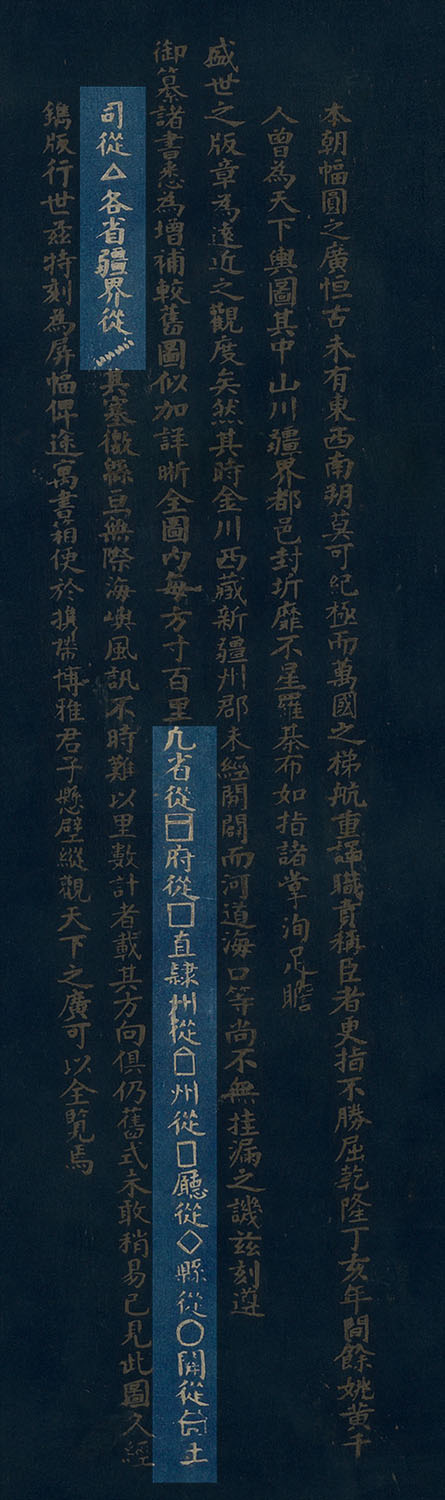 本朝幅圓之廣恒古未有東西南朔莫可紀極而萬國之梯航重譯職貢稱臣者更指不勝屈乾隆丁亥年間餘姚黃千
人曾為天下輿圖其中山川疆界都邑封圻靡不星羅棊布如指諸掌洵足瞻
盛世之版章為遠近之觀度矣然其時金川西藏新疆州郡未經開闢而河道海口等尚不無挂漏之譏茲刻遵
御纂諸書悉為增補較舊圖似加詳晰全圖內每方寸百里凡省從囗府從□直隸州從⌂州從▯廳從◇縣從○關從土
司從△各省疆界從……其塞徼緜亘無際海嶼風訊不時難以里數計者載其方向俱仍舊式未敢稍易已見此圖久經
鐫版行世茲特刻為屏幅俾途寓書箱便於攜帶博雅君子懸壁縱觀天下之廣可以全覽焉